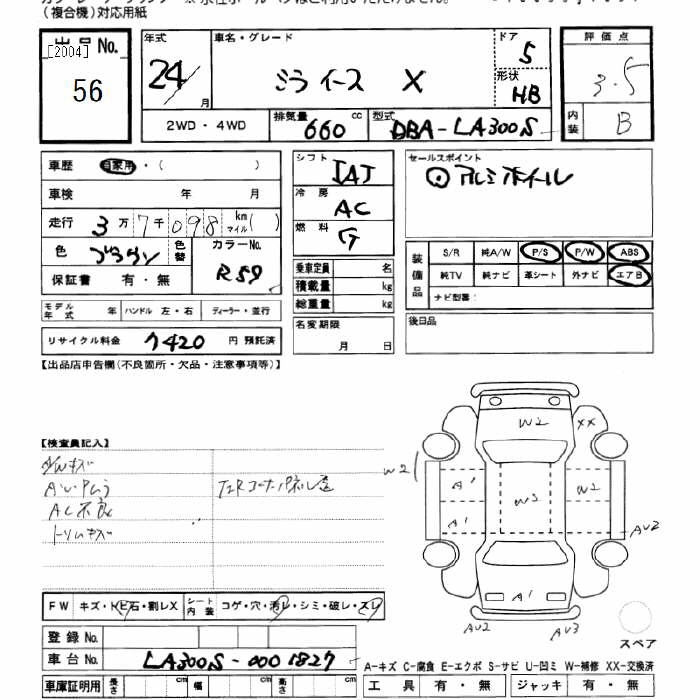 (複合機)対応用紙
出品No.
[2004]
56
年式
24/
月
車名・グレード
ミラ イース X
ドア
5
形状
HB
2WD・4WD
排気量
660
cc
型式
DBA-LA300S
評価点
3.5
内装
B
車歴
自家用・( )
車検 年 月
走行 3万7千098 km マイル( )
色 ブラウン
色替
カラーNo.
R59
保証書 有・無
モデル年式 年
ハンドル 左・右
ディーラー・並行
リサイクル料金 7420 円 預託済
シフト
IAT
冷房
AC
燃料
G
乗車定員 名
積載量 kg
総重量 kg
名変期限
月 日
セールスポイント
⊙アルミホイール
装備品
S/R 純A/W P/S P/W ABS
純TV 純ナビ 革シート 外ナビ エアB
ナビ型番:
後日品
【出品店申告欄(不良箇所・欠品・注意事項等)】
【検査員記入】
AC不良
トリムキズ
W2
XX
W2
A1
W3
W2
A1
AU2
A1
AU2
AU3
スペア
FW キズ・トビ石・割レX
シート内装 コゲ・穴・汚レ・シミ・破レ・スレ
登録No.
車台No. LA300S-0001827
車庫証明用 長さ cm 幅 cm 高さ cm
A-キズ C-腐食 E-エクボ S-サビ U-凹ミ W-補修 XX-交換済
工具 有・無 ジャッキ 有・無